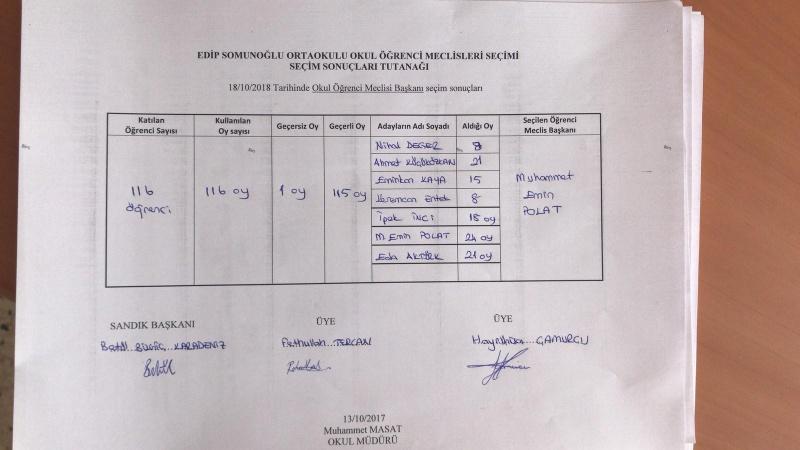 EDİP SOMUNOĞLU ORTAOKULU OKUL ÖĞRENCİ MECLİSLERİ SEÇİMİ
SEÇİM SONUÇLARI TUTANAĞI
18/10/2018 Tarihinde Okul Öğrenci Meclisi Başkanı seçim sonuçları
Katılan Öğrenci Sayısı Kullanılan Oy sayısı Geçersiz Oy Geçerli Oy Adayların Adı Soyadı Aldığı Oy Seçilen Öğrenci Meclis Başkanı
116 öğrenci 116 oy 1 oy 115 oy
Nihal DEĞER 8
Ahmet 21
Emirhan KAYA 15
8
İpek İNCİ 18 oy
M. Emin POLAT 24 oy
Eda 21 oy
Muhammet
Emin
POLAT
SANDIK BAŞKANI ÜYE ÜYE
KARADENİZ Fethullah TERCAN GAMURCU
13/10/2017
Muhammet MASAT
OKUL MÜDÜRÜ